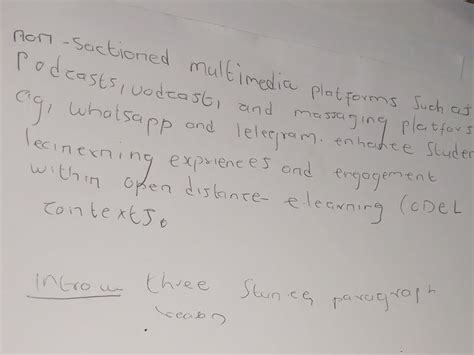 non-sactioned multimedia platforms such as
Podcasts, vodcast, and massaging platfors
eg, whatsapp and Telegram. enhance Studen
expriences and engagement
within open distance-e-learning (ODeL
contexts.
Intro three paragraph